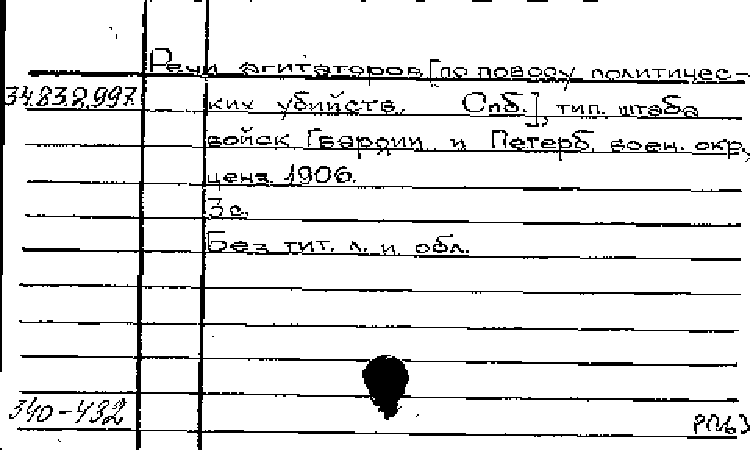 Речи агитаторов [по поводу политичес-
34.83.2.997. ких убийств. Спб.], тип. штаба
войск Гвардии и Петерб. воен. окр.,
ценз. 1906.
3 с.
Без тит. л. и обл.
340-432